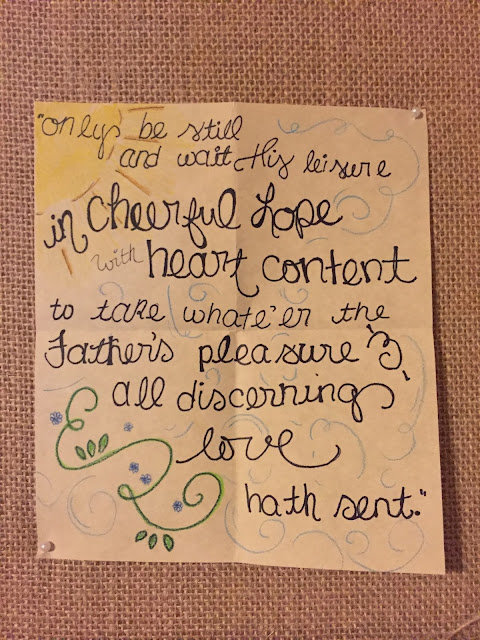 "only be still
and wait His leisure
in cheerful hope
with heart content
to take whate'er the
Father's pleasure &
all discerning
love
hath sent."